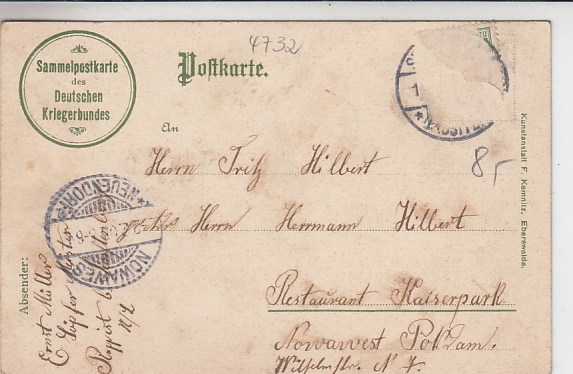 4732
Sammelpostkarte
des
Deutschen
Kriegerbundes
Postkarte.
An
Herrn Fritz Hilbert
Herrn Herrmann Hilbert
Restaurant Kaiserpark
Nowawest Potsdam.
Wilhelmstr. N 7.
8,-
Kunstanstalt F. Kemnitz, Eberswalde.
Absender:
Ernst Müller
NOWAWES
NEUENDORF